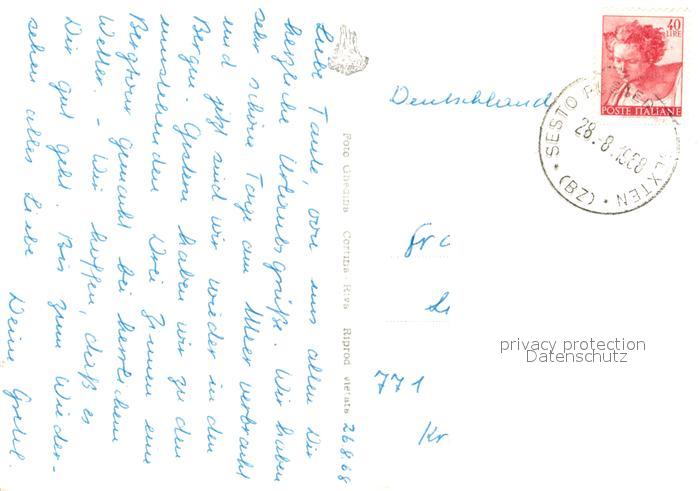 26.8.68
Liebe Tante, von uns allen Dir
herzliche Urlaubsgrüße. Wir haben
sehr schöne Tage am Meer verbracht
und jetzt sind wir wieder in den
Bergen. Gestern haben wir zu den
umstehenden Drei Zinnen eine
Bergtour gemacht bei herrlichem
Wetter. - Wir hoffen, daß es
Dir gut geht. Bis zum Wieder-
sehen alles Liebe
Deine Gretel.
Foto Ghedina Cortina - Riva Riprod vietata
40
LIRE
POSTE ITALIANE
SESTO
SEXTEN
(BZ)
28.-8.1968
Deutschland
Fr
771
Kr
privacy protection
Datenschutz